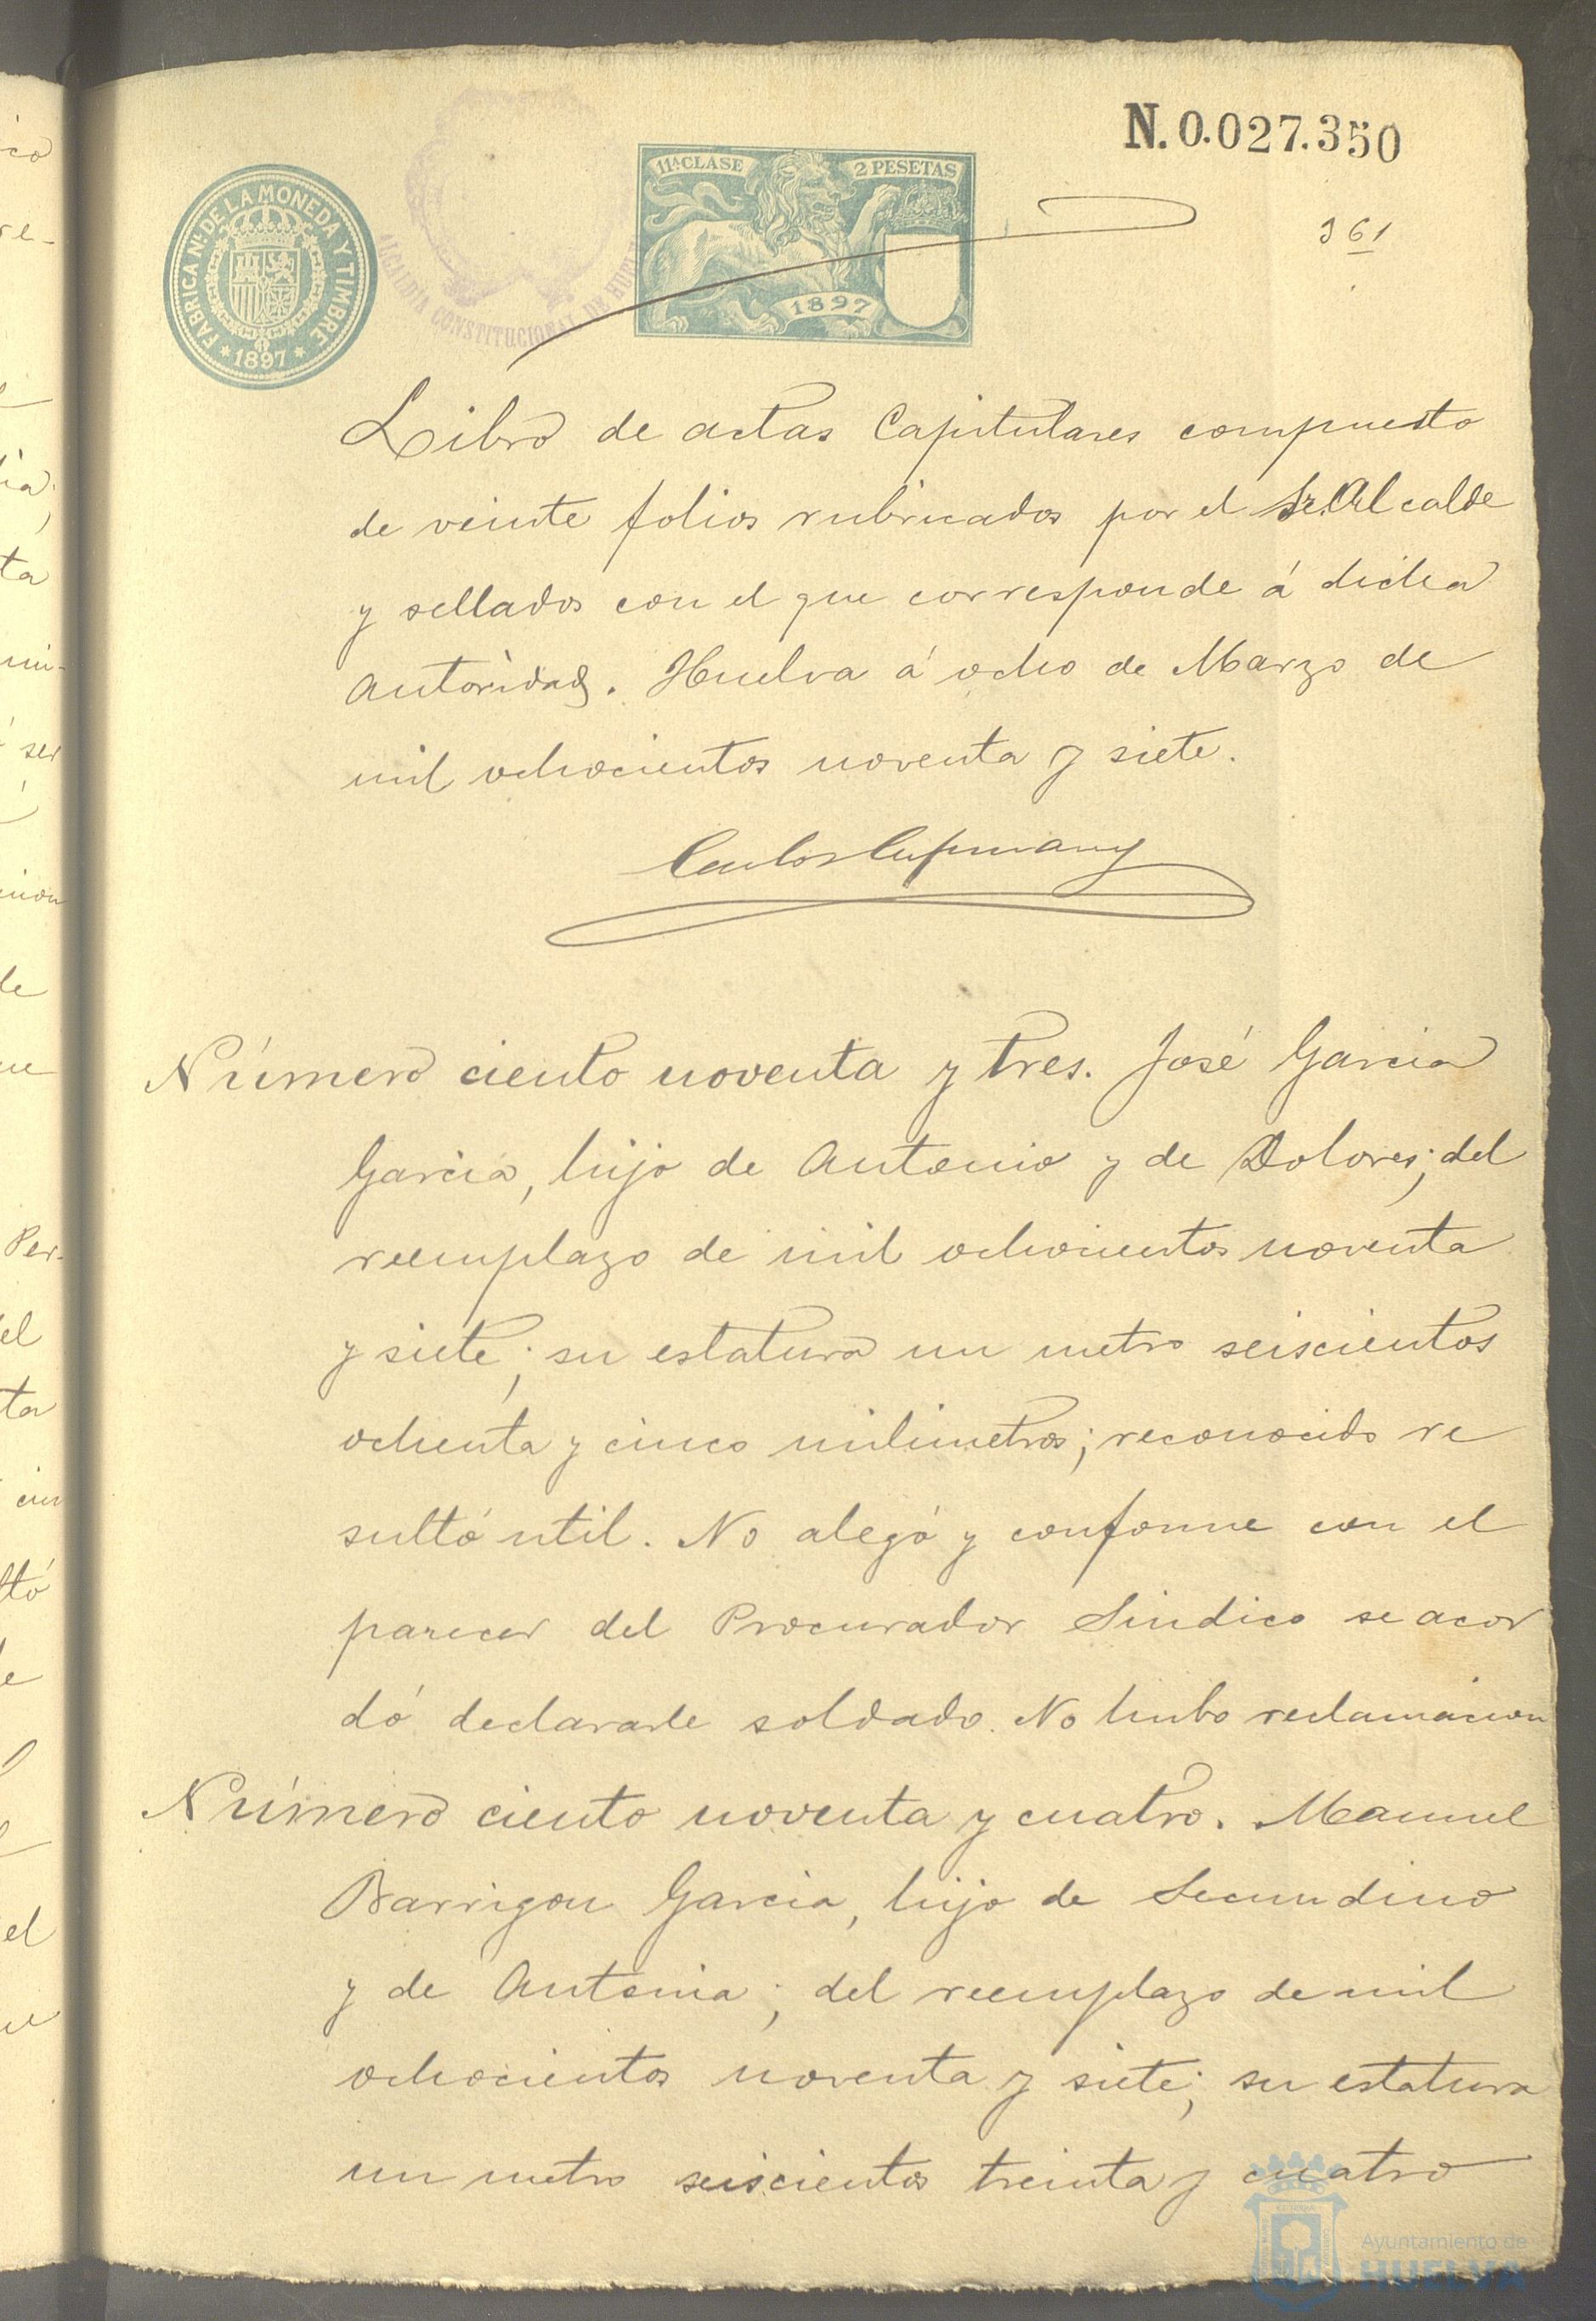 N. 0.027.350
361
FABRICA N.L DE LA MONEDA Y TIMBRE
* 1897 *
ALCALDIA CONSTITUCIONAL DE
11ª CLASE
2 PESETAS
1897
Libro de actas Capitulares compuesto
de veinte folios rubricados por el Sr. Alcalde
y sellados con el que corresponde á dicha
Autoridad. Huelva á ocho de Marzo de
mil ochocientos noventa y siete.
Número ciento noventa y tres. José Garcia
Garcia, hijo de Antonio y de Dolores; del
reemplazo de mil ochocientos noventa
y siete; su estatura un metro seiscientos
ochenta y cinco milimetros; reconocido re
sultó util. No alegó y conforme con el
parecer del Procurador Sindico se acor
dó declararle soldado. No hubo reclamacion
Número ciento noventa y cuatro. Manuel
Barrigon Garcia, hijo de Secundino
y de Antonia; del reemplazo de mil
ochocientos noventa y siete; su estatura
un metro seiscientos treinta y cuatro
Ayuntamiento de
HUELVA